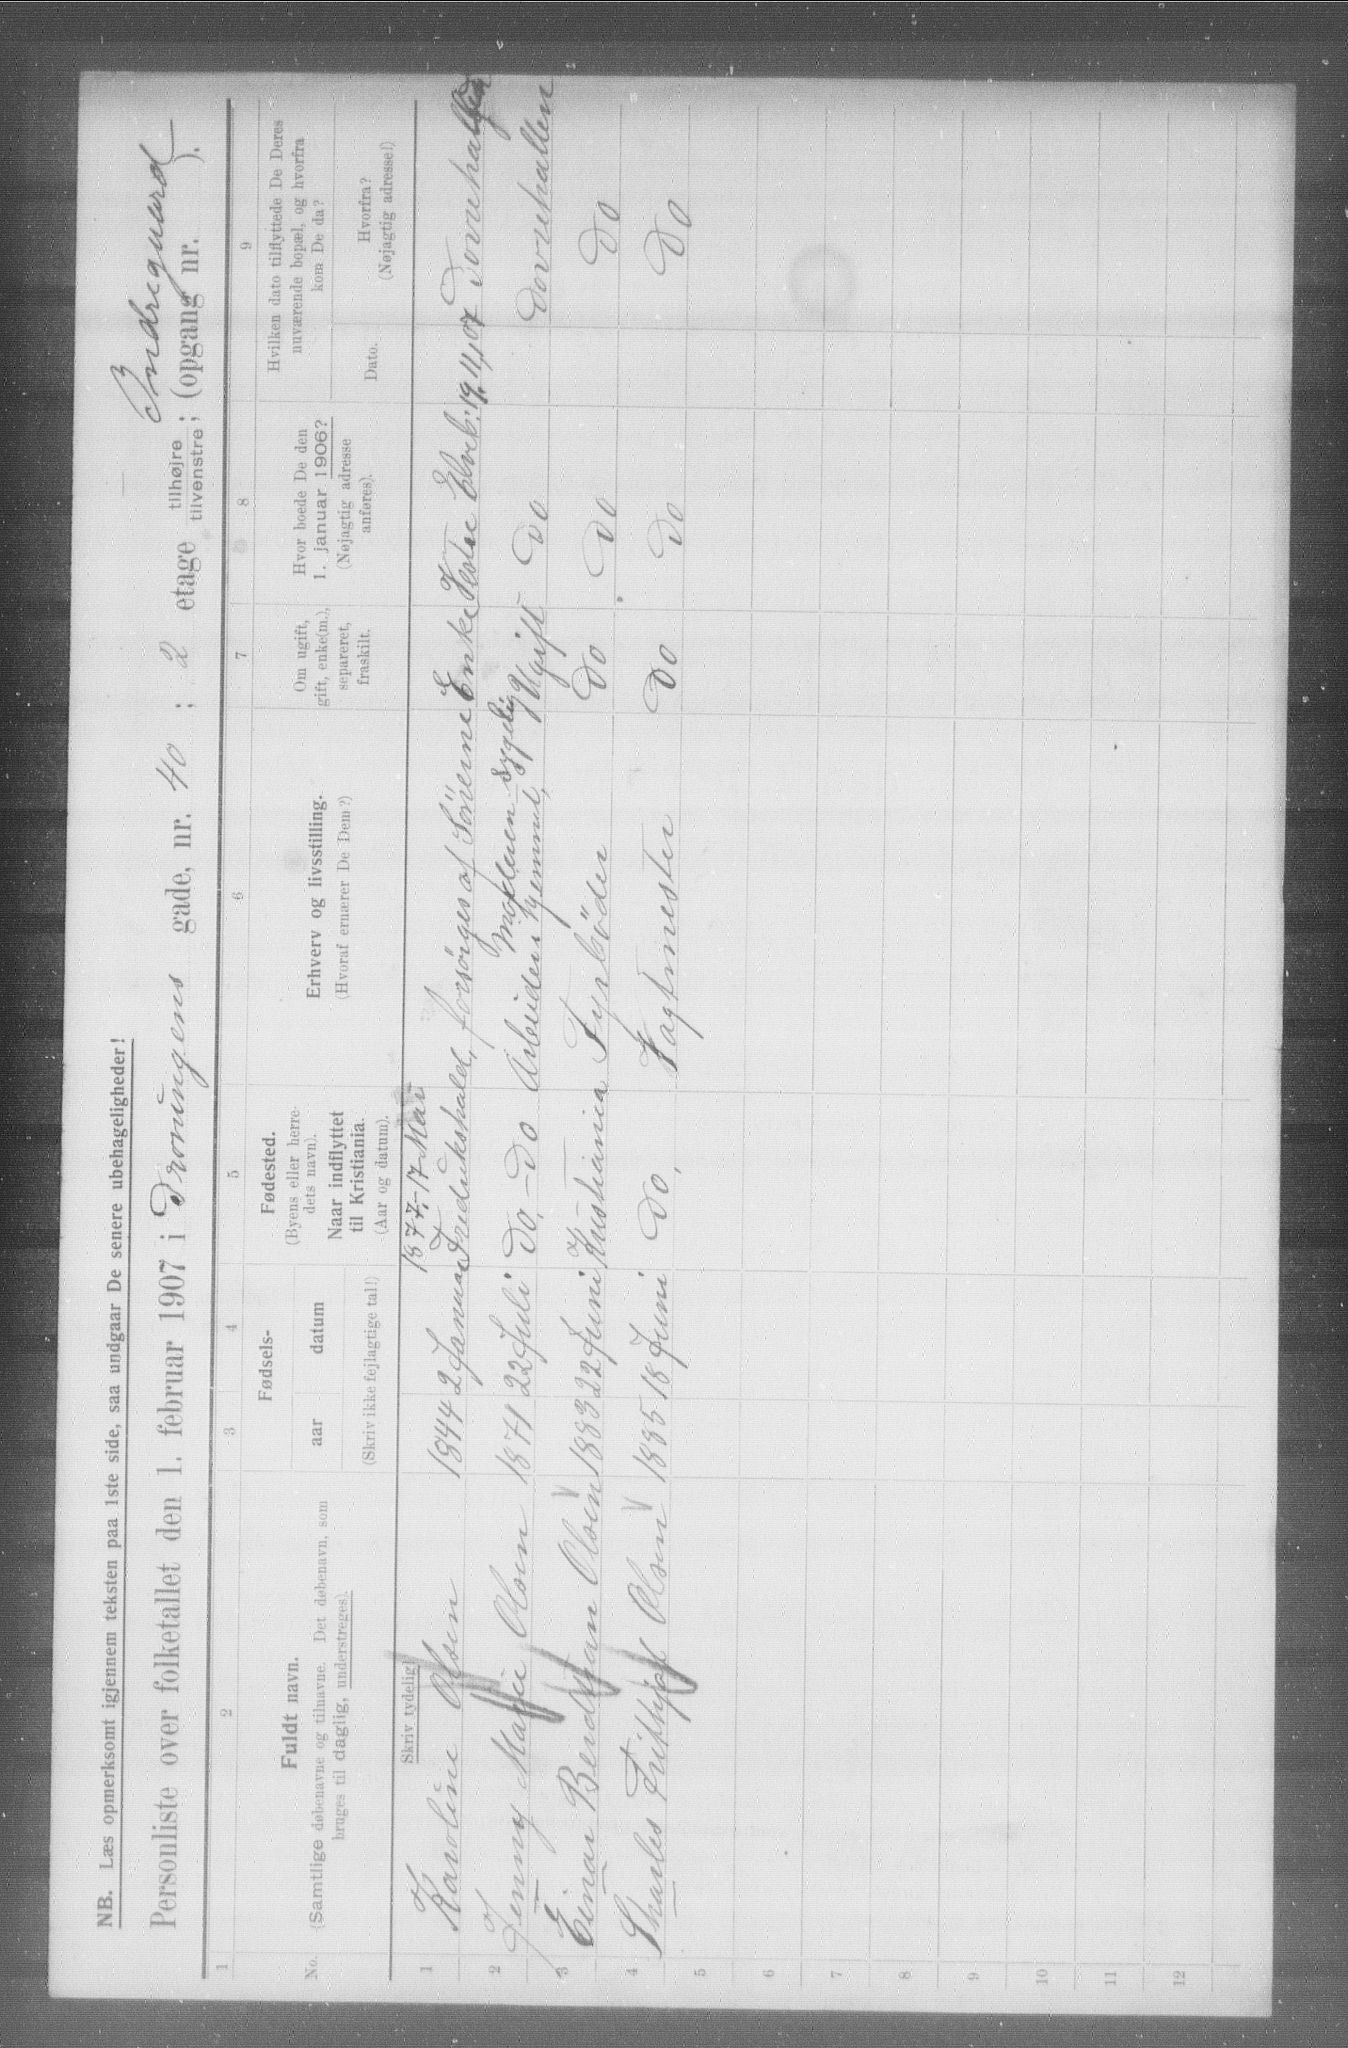 NB. Læs opmerksomt igjennem teksten paa 1ste side, saa undgaar De senere ubehageligheder!
Personliste over folketallet den 1. februar 1907 i Dronningens gade, nr. 40 ; 2 etage tilhøjre tilvenstre ; (opgang nr. ).
1 2 3 4 5 6 7 8 9
No.
Fuldt navn.
(Samtlige døbenavne og tilnavne. Det døbenavn, som
bruges til daglig, understreges).
Skriv tydelig!
Fødsels-
aar datum
(Skriv ikke fejlagtige tal!)
Fødested.
(Byens eller herre-
dets navn).
Naar indflyttet
til Kristiania.
(Aar og datum).
Erhverv og livsstilling.
(Hvoraf ernærer De Dem?)
Om ugift,
gift, enke(m.),
separeret,
fraskilt.
Hvor boede De den
1. januar 1906?
(Nøjagtig adresse
anføres).
Hvilken dato tilflyttede De Deres
nuværende bopæl, og hvorfra
kom De da?
Dato.
Hvorfra?
(Nøjagtig adresse!)
1877-17 Mai
1 Karoline Olsen 1844 2 Januar Fredrikshald, forsørges af Sönerne Enke 19/11 07 Dovrehallen
Moderen sygelig
2 Jenny Marie Olsen 1871 22 Juli Do - Do Arbeider i hjemmet, Ugift Do Dovrehallen
3 Einar Berdtman Olsen 1883 22 Juni Kristiania Fyrböder Do Do Do
4 Sharles Frithjof Olsen 1885 18 Juni Do, Vagtmester Do Do Do
5
6
7
8
9
10
11
12